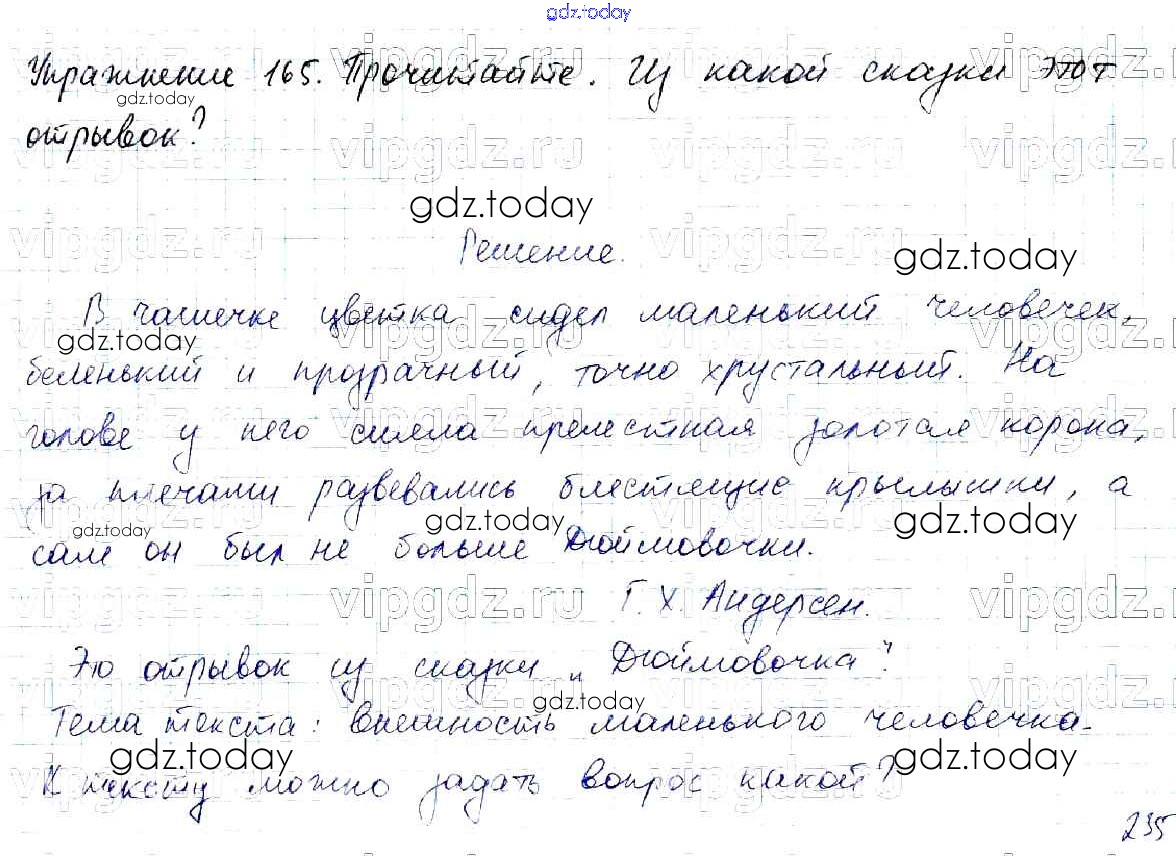 gdz.today
Упражнение 165. Прочитайте. Из какой сказки этот
отрывок?
Решение.
В чашечке цветка сидел маленький человечек,
беленький и прозрачный, точно хрустальный. На
голове у него сияла прелестная золотая корона,
за плечами развевались блестящие крылышки, а
сам он был не больше Дюймовочки.
Г. Х. Андерсен.
Это отрывок из сказки „Дюймовочка".
Тема текста: внешность маленького человечка.
К тексту можно задать вопрос какой?
235
vipgdz.ru
gdz.today